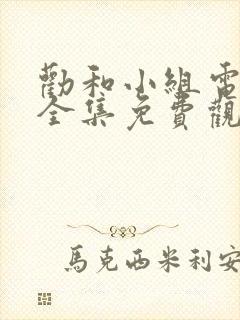 勸和小組電
全集免費觀
馬克西米利安